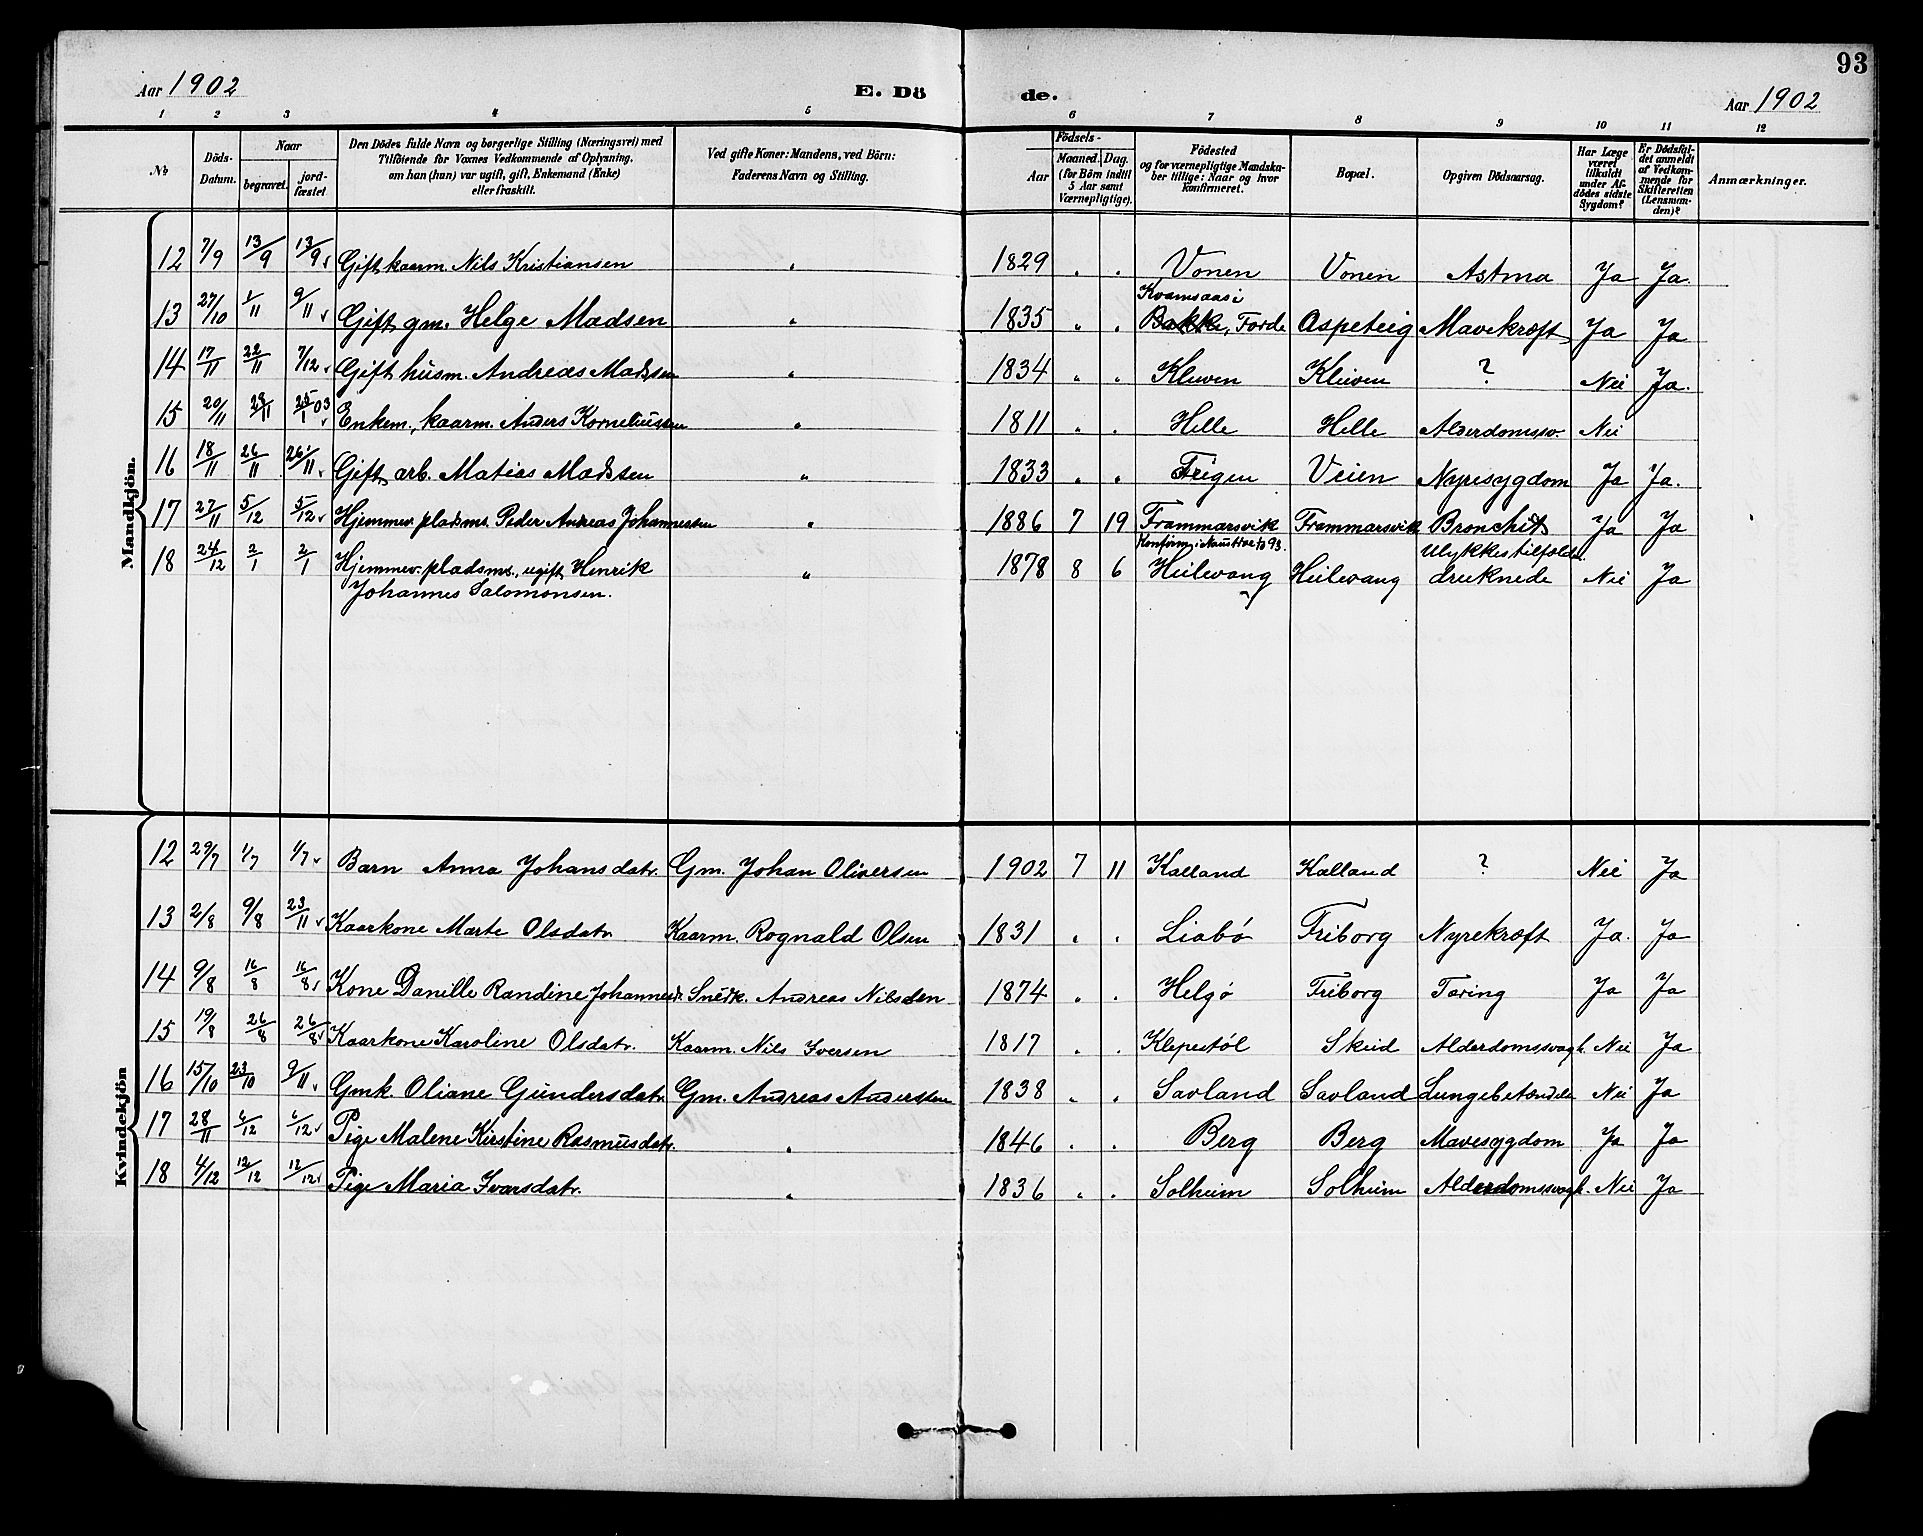 93
Aar 1902 E. Dö de. Aar 1902
1 2 3 4 5 6 7 8 9 10 11 12
№ Döds-Datum. Naar begravet. jord-fæstet. Den Dödes fulde Navn og borgerlige Stilling (Næringsvei) med Tilföiende for Voxnes Vedkommende af Oplysning, om han (hun) var ugift, gift, Enkemand (Enke) eller fraskilt. Ved gifte Koner: Mandens, ved Börn: Faderens Navn og Stilling. Födsels- Aar Maaned. Dag. (for Börn indtil 5 Aar samt Værnepligtige). Födested og for værnepligtige Mandskaber tillige: Naar og hvor Konfirmeret. Bopæl. Opgiven Dödsaarsag. Har Læge været tilkaldt under Afdödes sidste Sygdom? Er Dödsfaldet anmeldt af Vedkommende for Skifteretten (Lensmanden)? Anmærkninger.
Mandkjön.
12 7/9 13/9 13/9 Gift kaarm. Nils Kristiansen " 1829 " " Vonen Vonen Astma Ja Ja.
Kvamsaas i
13 27/10 1/11 9/11 Gift gm. Helge Madsen " 1835 " " Bakke, Førde Aspeteig Mavekræft Ja Ja
14 17/11 22/11 7/12 Gift husm. Andreas Madsen " 1834 " " Kleiven Kleiven ? Nei Ja.
15 20/11 29/11 25/1 03 Enkem., kaarm. Anders Korneliussen " 1811 " " Helle Helle Alderdomssv. Nei
16 18/11 26/11 26/11 Gift arb. Matias Madssen " 1833 " " Feigen Veien Nyresygdom Ja Ja.
17 27/11 5/12 5/12 Hjemmev. pladsms. Peder Andreas Johannessen " 1886 7 19 Frammarsvik Frammarsvik Bronchit Ja Ja
Konfirm. i Naustdal 93. Ulykkestilfælde
18 24/12 2/1 2/1 Hjemmev. pladsms., ugift Henrik " 1878 8 6 Heilevang Heilevang druknede Nei Ja
Johannes Salomonsen.
Kvindekjön
12 29/7 1/7 1/7 Barn Anna Johansdatr. Gm. Johan Oliversen 1902 7 11 Kalland Kalland ? Nei Ja
13 2/8 9/8 23/11 Kaarkone Marte Olsdatr. Kaarm. Rognald Olsen 1831 " " Liabø Friborg Nyrekræft Ja. Ja
14 9/8 16/8 16/8 Kone Danille Randine Johannesd. Snedk. Andreas Nilsden 1874 " " Helgø Friborg Tæring Ja Ja
15 19/8 26/8 26/8 Kaarkone Karoline Olsdatr. Kaarm. Nils Iversen 1817 " " Klepestøl Skeid Alderdomssvagh. Nei Ja
16 15/10 23/10 9/11 Gmk. Oliane Gundersdatr. Gm. Andreas Anderssen 1838 " " Savland Savland Lungebetændele Nei Ja
17 28/11 6/12 6/12 Pige Malene Kirstine Rasmusdatr. " 1846 " " Berg Berg Mavesygdom Ja Ja
18 4/12 12/12 12/12 Pige Maria Ivarsdatr. " 1836 " " Solheim Solheim Alderdomssvagh. Nei Ja